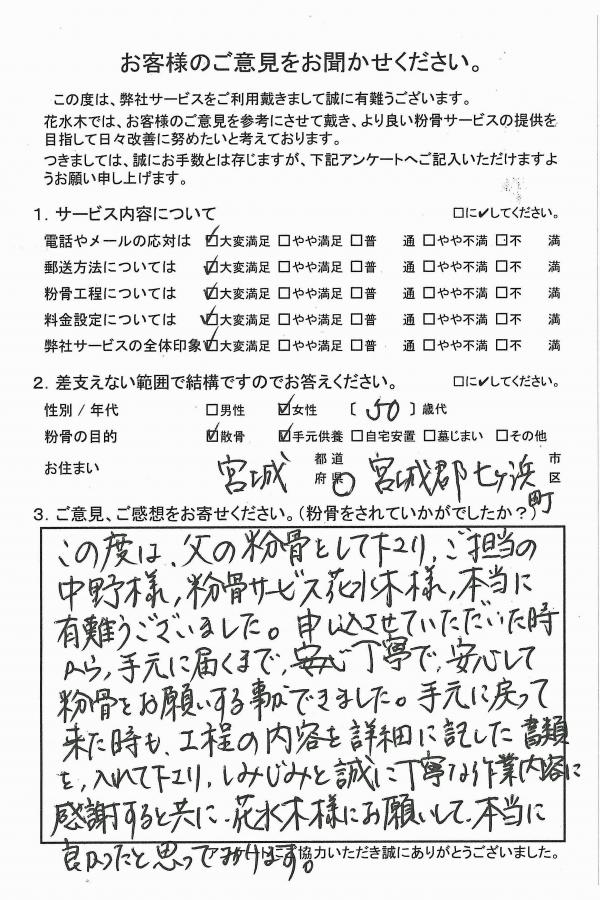 お客様のご意見をお聞かせください。
この度は、弊社サービスをご利用戴きまして誠に有難うございます。
花水木では、お客様のご意見を参考にさせて戴き、より良い粉骨サービスの提供を
目指して日々改善に努めたいと考えております。
つきましては、誠にお手数とは存じますが、下記アンケートへご記入いただけますよ
うお願い申し上げます。
1. サービス内容について □に✔してください。
電話やメールの応対は ☑大変満足 □やや満足 □普 通 □やや不満 □不 満
郵送方法については ☑大変満足 □やや満足 □普 通 □やや不満 □不 満
粉骨工程については ☑大変満足 □やや満足 □普 通 □やや不満 □不 満
料金設定については ☑大変満足 □やや満足 □普 通 □やや不満 □不 満
弊社サービスの全体印象 ☑大変満足 □やや満足 □普 通 □やや不満 □不 満
2. 差支えない範囲で結構ですのでお答えください。 □に✔してください。
性別 / 年代 □男性 ☑女性 〔 50 〕歳代
粉骨の目的 ☑散骨 ☑手元供養 □自宅安置 □墓じまい □その他
お住まい 宮城 都道府県 宮城郡七ヶ浜町 市区
3. ご意見、ご感想をお寄せください。（粉骨をされていかがでしたか？）
この度は、父の粉骨をして下さり、ご担当の
中野様、粉骨サービス花水木様、本当に
有難うございました。申し込させていただいた時
から、手元に届くまで、丁寧で、安心して
粉骨をお願いする事ができました。手元に戻って
来た時も、工程の内容を詳細に記した書類
を、入れて下さり、しみじみと誠に丁寧な作業内容に
感謝すると共に、花水木様にお願いして、本当に
良かったと思っております。
協力いただき誠にありがとうございました。